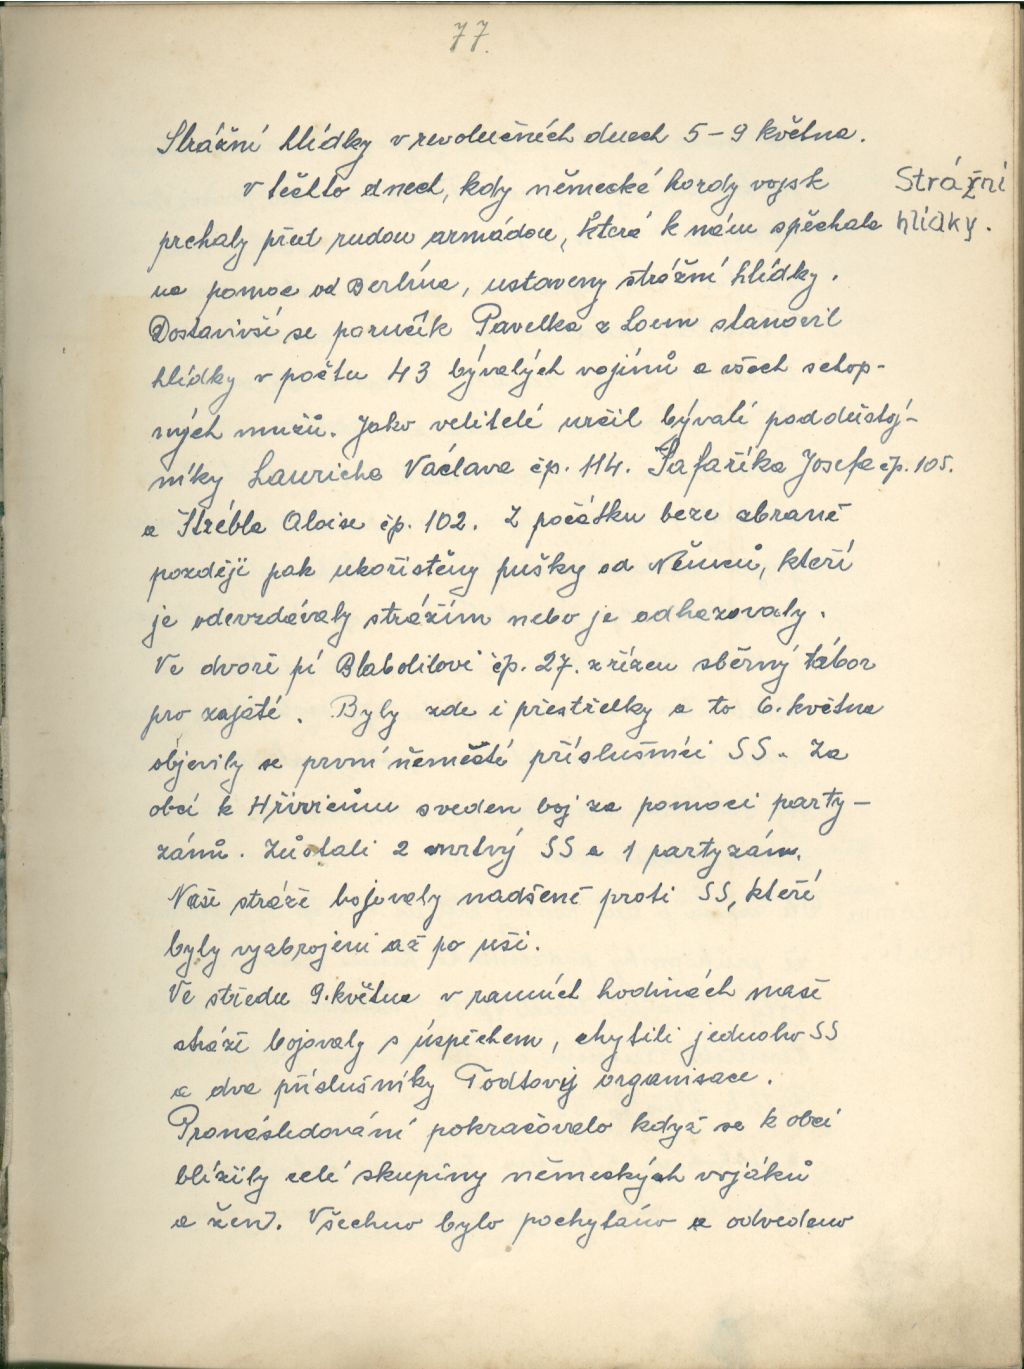 77.
Strážní hlídky v revolučních dnech 5-9 května.
V těchto dnech, kdy německé hordy vojsk
Strážní
hlídky.
prchaly před rudou armádou, která k nám spěchala
na pomoc od Berlína, ustaveny strážní hlídky.
Dostavivší se poručík Pavelka z Loun stanovil
hlídky v počtu 43 bývalých vojínů a všech schop-
ných mužů. Jako velitelé určil bývalí poddůstoj-
níky Lauricha Václava čp. 114. Šafaříka Josefa čp. 105.
a Štrébla Aloise čp. 102. Z počátku beze zbraně
později pak ukořistěny pušky od Němců, kteří
je odevzdávaly strážím nebo je odhazovaly.
Ve dvoře pí Blabolilové čp. 27. zřízen sběrný tábor
pro zajaté. Byly zde i přestřelky a to 6. května
objevily se první němečtí příslušníci SS. Za
obcí k Hřivicům sveden boj za pomoci party-
zánů. Zůstali 2 mrtvý SS a 1 partyzán.
Naše stráže bojovaly nadšeně proti SS, kteří
byly vyzbrojeni až po uši.
Ve středu 9. května v ranních hodinách naše
stráže bojovaly s úspěchem, chytili jednoho SS
a dva příslušníky Todtovy organisace.
Pronásledování pokračovalo když se k obci
blížily celé skupiny německých vojáků
a žen. Všechno bylo pochytáno a odvedeno